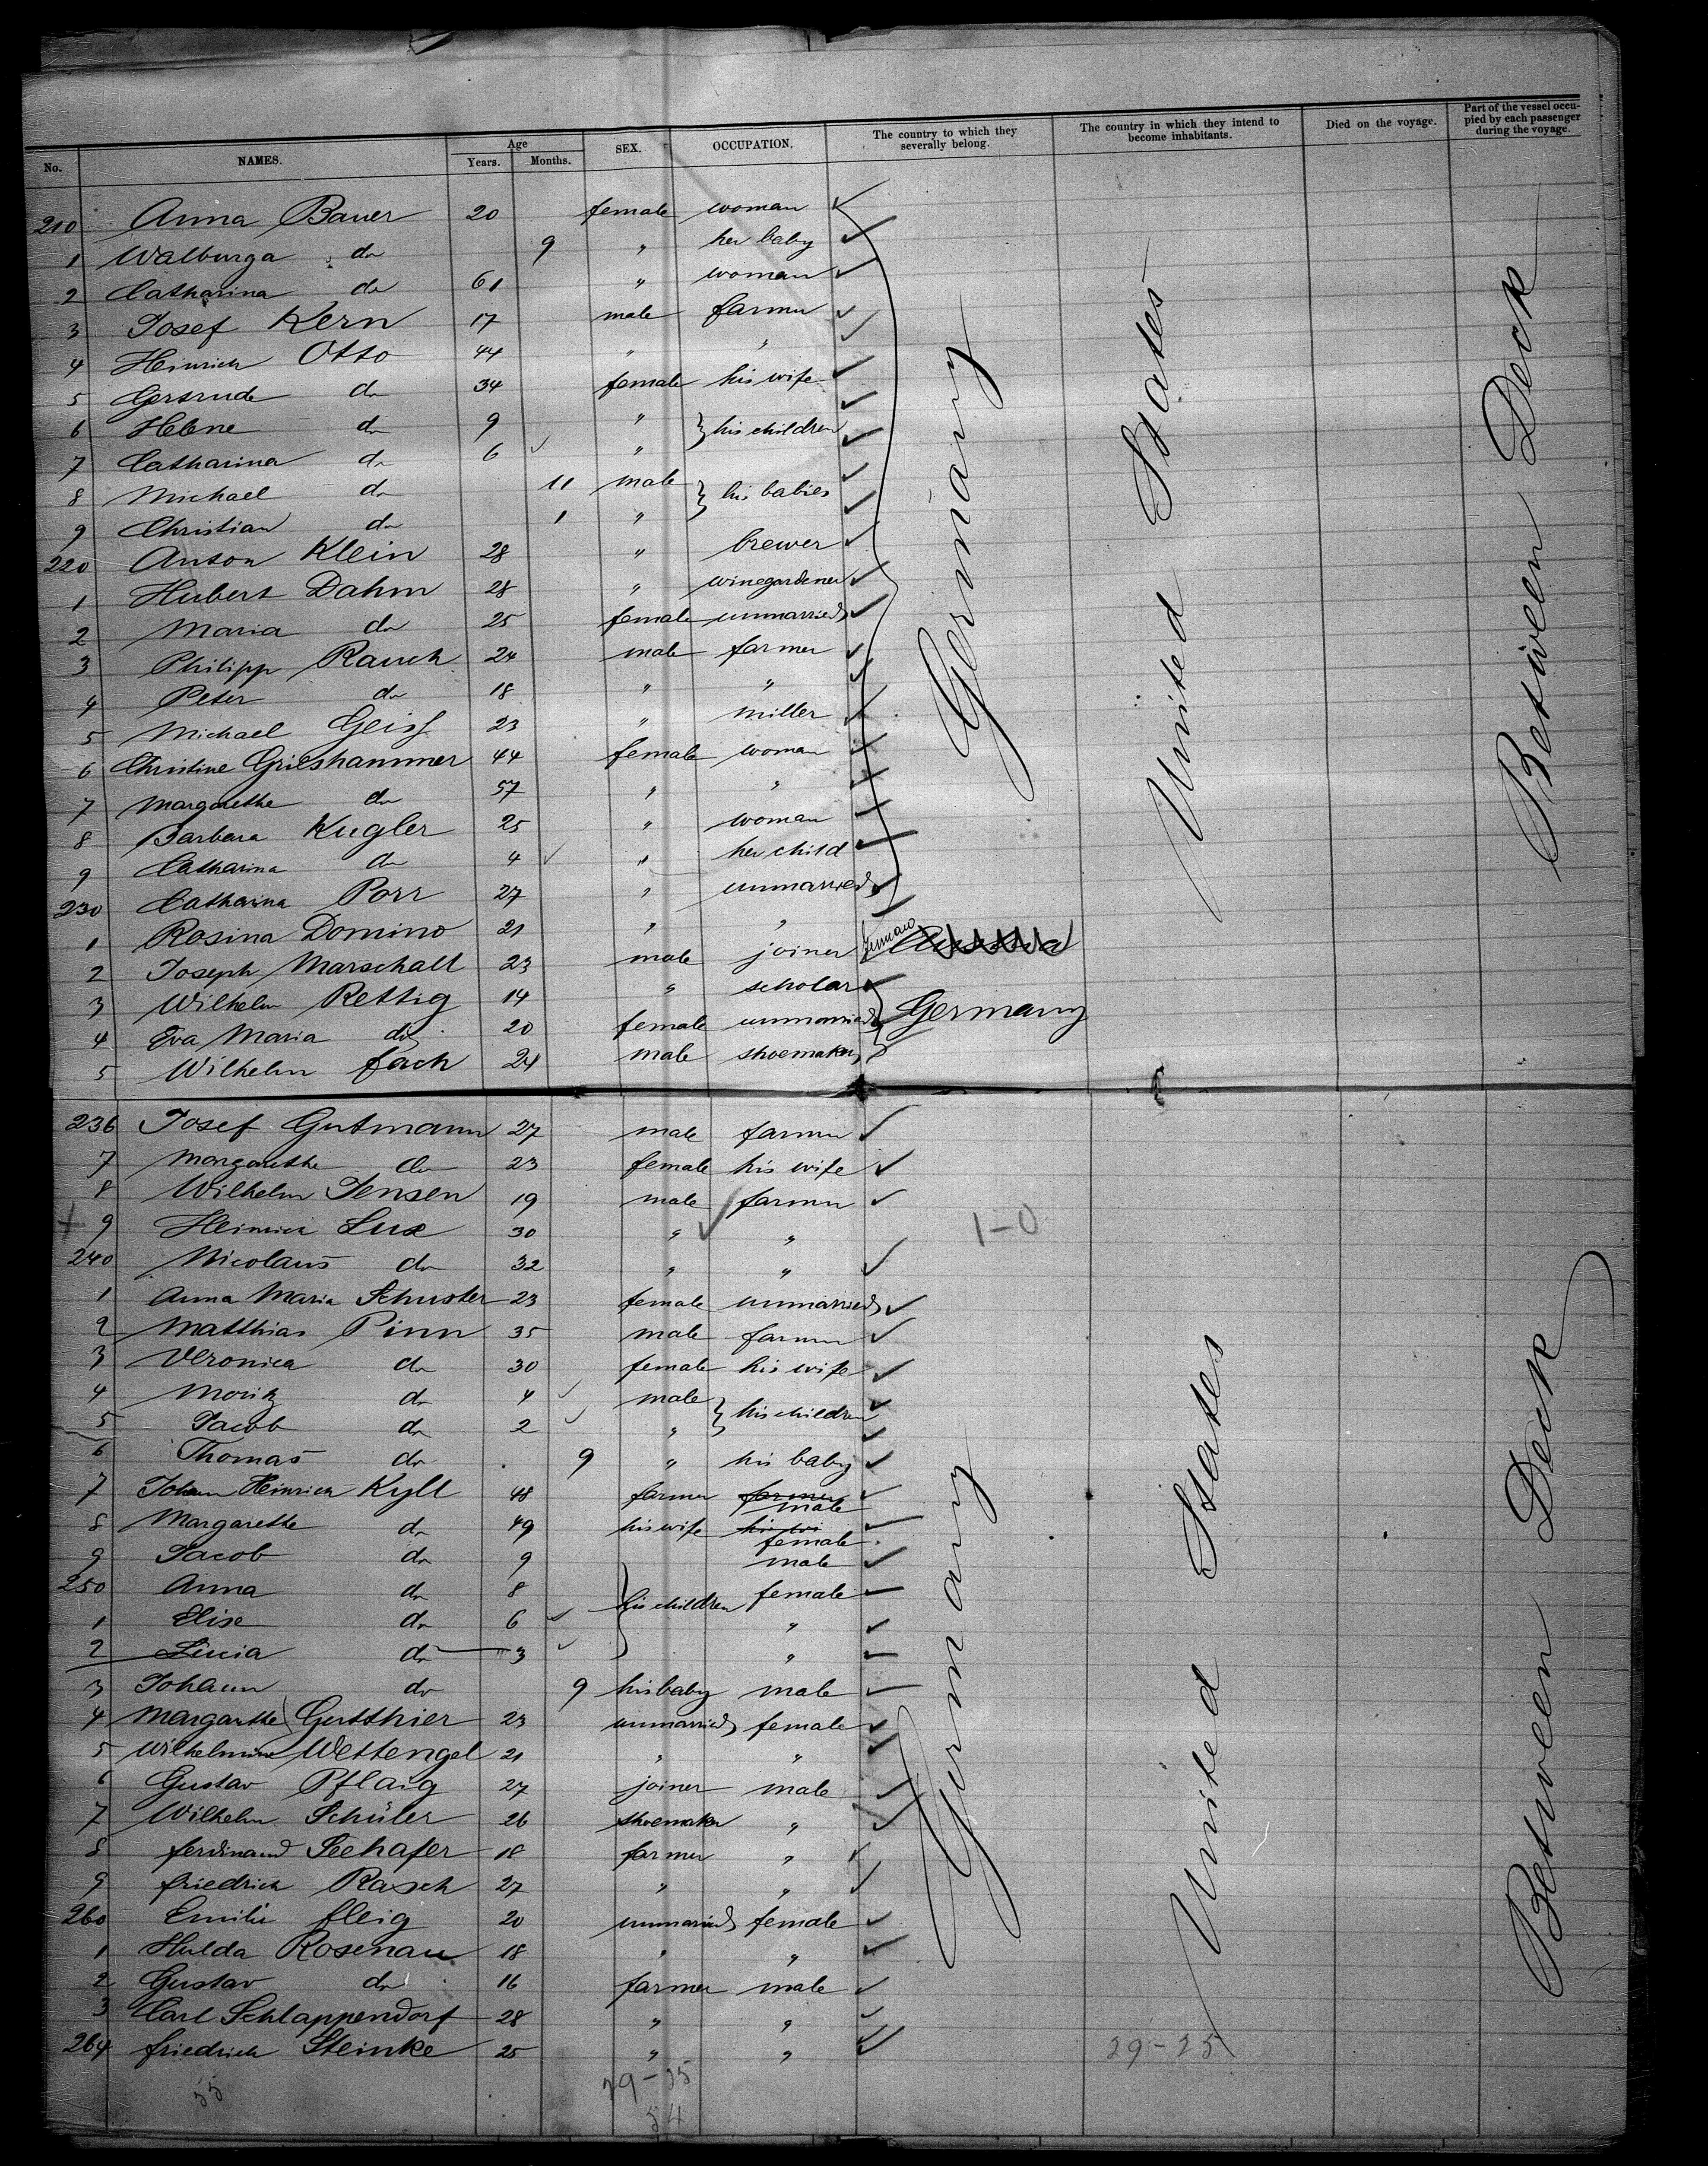 No. NAMES. Age Years. Months. SEX. OCCUPATION. The country to which they severally belong. The country in which they intend to become inhabitants. Died on the voyage. Part of the vessel occupied by each passenger during the voyage.
210 Anna Bauer 20 female woman
1 Walburga do 9 " her baby
2 Catharina do 61 " woman
3 Josef Kern 17 male farmer
4 Heinrich Otto 44 " "
5 Gertrude do 34 female his wife
6 Helene do 9 " } his children
7 Catharina do 6 "
8 Michael do 11 male } his babies
9 Christian do 1 "
220 Anton Klein 28 " brewer
1 Hubert Dahm 28 " winegardener
2 Maria do 25 female unmarried
3 Philipp Rauch 24 male farmer
4 Peter do 18 " "
5 Michael Geiss 23 " miller
6 Christine Grieshammer 44 female woman
7 Margarethe do 57 " "
8 Barbara Kugler 25 " woman
9 Catharina do 4 " her child
230 Catharina Porr 27 " unmarried
1 Rosina Domino 21 " "
2 Joseph Marschall 23 male joiner
3 Wilhelm Rettig 14 " scholar
4 Eva Maria do 20 female unmarried
5 Wilhelm Fach 24 male shoemaker
Germany
Germany
United States
Between Deck
236 Josef Gutmann 27 male farmer
7 Margarethe do 23 female his wife
8 Wilhelm Jensen 19 male farmer
9 Heinrich Lux 30 " " 1-0
240 Nicolaus do 32 " "
1 Anna Maria Schuster 23 female unmarried
2 Matthias Pinn 35 male farmer
3 Veronica do 30 female his wife
4 Moritz do 4 male } his children
5 Jacob do 2 "
6 Thomas do 9 " his baby
7 Johann Heinrich Kyll 48 farmer farmer male
8 Margarethe do 49 his wife his wi female
9 Jacob do 9 male
250 Anna do 8 his children female
1 Elise do 6 "
2 Lucia do 3 "
3 Johann do 9 his baby male
4 Margarethe Gutthier 23 unmarried female
5 Wilhelmine Wettengel 21 " "
6 Gustav Pflaig 27 joiner male
7 Wilhelm Schüler 26 shoemaker "
8 Ferdinand Seehafer 18 farmer "
9 Friedrich Rasch 27 " "
260 Emilie Fleig 20 unmarried female
1 Hulda Rosenau 18 " "
2 Gustav do 16 farmer male
3 Carl Schlappendorf 28 " "
264 Friedrich Steinke 25 " "
Germany
United States
Between Deck
29-25
55
54